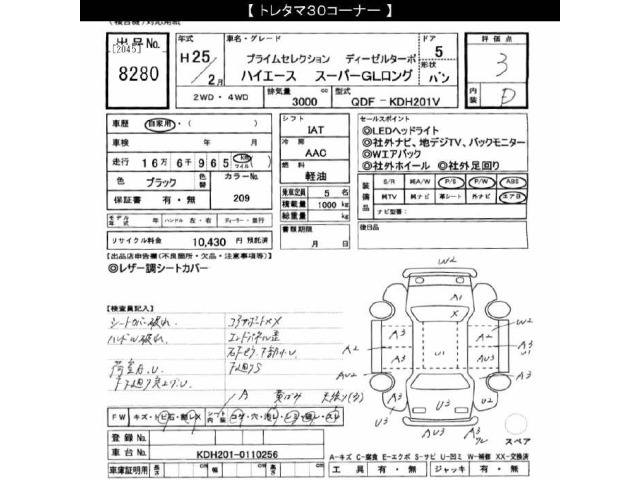 【 トレタマ30コーナー 】
出品No. [2045] 8280
年式 H25/2月
車名・グレード プライムセレクション ディーゼルターボ
ハイエース スーパーGLロング
ドア 5
形状 バン
評価点 3
内装 D
2WD・4WD
排気量 3000 cc
型式 QDF-KDH201V
車歴 自家用・( )
車検 年 月
走行 16万6千965 Km マイル
色 ブラック 色替 カラーNo. 209
保証書 有・無
モデル年式 年 ハンドル 左・右 ディーラー・並行
リサイクル料金 10,430 円 預託済
シフト IAT
冷房 AAC
燃料 軽油
乗車定員 5 名
積載量 1000 kg
総重量 kg
書類期限 月 日
セールスポイント
◎LEDヘッドライト
◎社外ナビ、地デジTV、バックモニター
◎Wエアバック
◎社外ホイール ◎社外足回り
装備品 S/R 純A/W P/S P/W ABS
純TV 純ナビ 革シート 外ナビ エアB
ナビ型番:
後日品
【出品店申告欄(不良箇所・欠品・注意事項等)】
◎レザー調シートカバー
【検査員記入】
シートカバー破れ.
ハンドル破れ.
コアサポートXX
下廻りS
W2
A1
X
A2
A3
A3
U1
W2
A3
U1
AU2
A3
A3
AU2
U2
U3
AU3
A3
A
FW キズ・トビ石・割レX
シート内装 コゲ・穴・汚レ・シミ・破レ・スレ
登録No.
車台No. KDH201-0110256
車庫証明用 長さ cm 幅 cm 高さ cm
スペア
A-キズ C-腐食 E-エクボ S-サビ U-凹ミ W-補修 XX-交換済
工具 有・無 ジャッキ 有・無